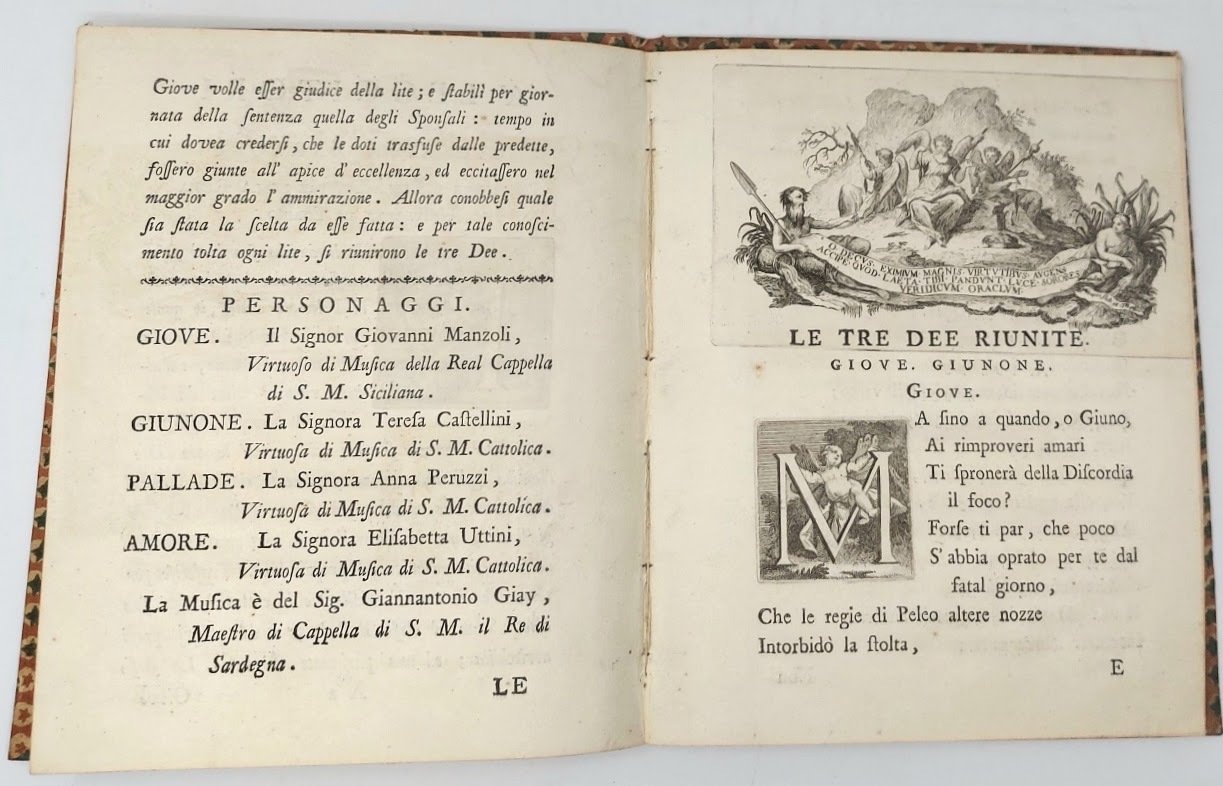 Giove volle eſſer giudice della lite; e ſtabilì per gior-
nata della ſentenza quella degli Sponſali: tempo in
cui dovea crederſi, che le doti trasfuſe dalle predette,
foſſero giunte all' apice d' eccellenza, ed eccitaſſero nel
maggior grado l' ammirazione. Allora conobbeſi quale
ſia ſtata la ſcelta da eſſe fatta: e per tale conoſci-
mento tolta ogni lite, ſi riunirono le tre Dee.
PERSONAGGI.
GIOVE. Il Signor Giovanni Manzoli,
Virtuoſo di Muſica della Real Cappella
di S. M. Siciliana.
GIUNONE. La Signora Tereſa Caſtellini,
Virtuoſa di Muſica di S. M. Cattolica.
PALLADE. La Signora Anna Peruzzi,
Virtuoſa di Muſica di S. M. Cattolica.
AMORE. La Signora Eliſabetta Uttini,
Virtuoſa di Muſica di S. M. Cattolica.
La Muſica è del Sig. Giannantonio Giay,
Maeſtro di Cappella di S. M. il Re di
Sardegna.
LE
O DECVS EXIMIVM MAGNIS VIRTVTIBVS AVGENS
ACCIPE QVOD LAETA TIBI PANDVNT LVCE SORORES
VERIDICVM ORACLVM
LE TRE DEE RIUNITE.
GIOVE. GIUNONE.
GIOVE.
MA ſino a quando, o Giuno,
Ai rimproveri amari
Ti ſpronerà della Diſcordia
il foco?
Forſe ti par, che poco
S' abbia oprato per te dal
fatal giorno,
Che le regie di Peleo altere nozze
Intorbidò la ſtolta,
E